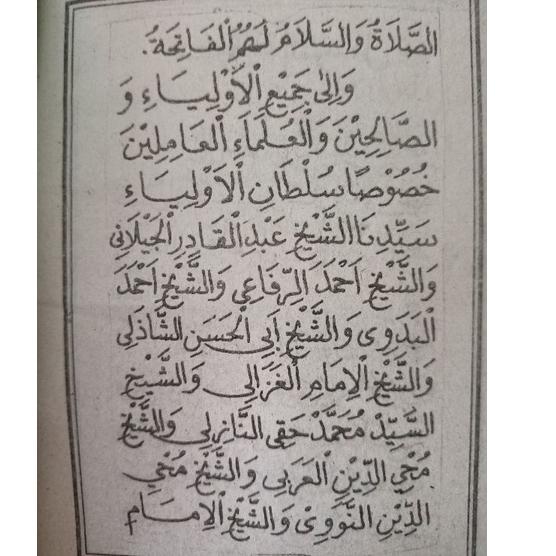 الصَّلَاةُ وَالسَّلَامُ لَهُمُ الْفَاتِحَةُ.
وَاِلٰى جَمِيْعِ الْاَوْلِيَاءِ وَ
الصَّالِحِيْنَ وَالْعُلَمَاءِ الْعَامِلِيْنَ
خُصُوْصًا سُلْطَانِ الْاَوْلِيَاءِ
سَيِّدِنَا الشَّيْخِ عَبْدِ الْقَادِرِ الْجَيْلَانِي
وَالشَّيْخِ اَحْمَدَ الرِّفَاعِي وَالشَّيْخِ اَحْمَدَ
الْبَدَوِى وَالشَّيْخِ اَبِي الْحَسَنِ الشَّاذَلِى
وَالشَّيْخِ الْاِمَامِ الْغَزَالِى وَالشَّيْخِ
السَّيِّدْ مُحَمَّدْ حَقِى النَّازِلِى وَالشَّيْخِ
مُحْيِ الدِّيْنِ الْعَرَبِى وَالشَّيْخِ مُحْيِ
الدِّيْنِ النَّوَوِىْ وَالشَّيْخِ الْاِمَامِ